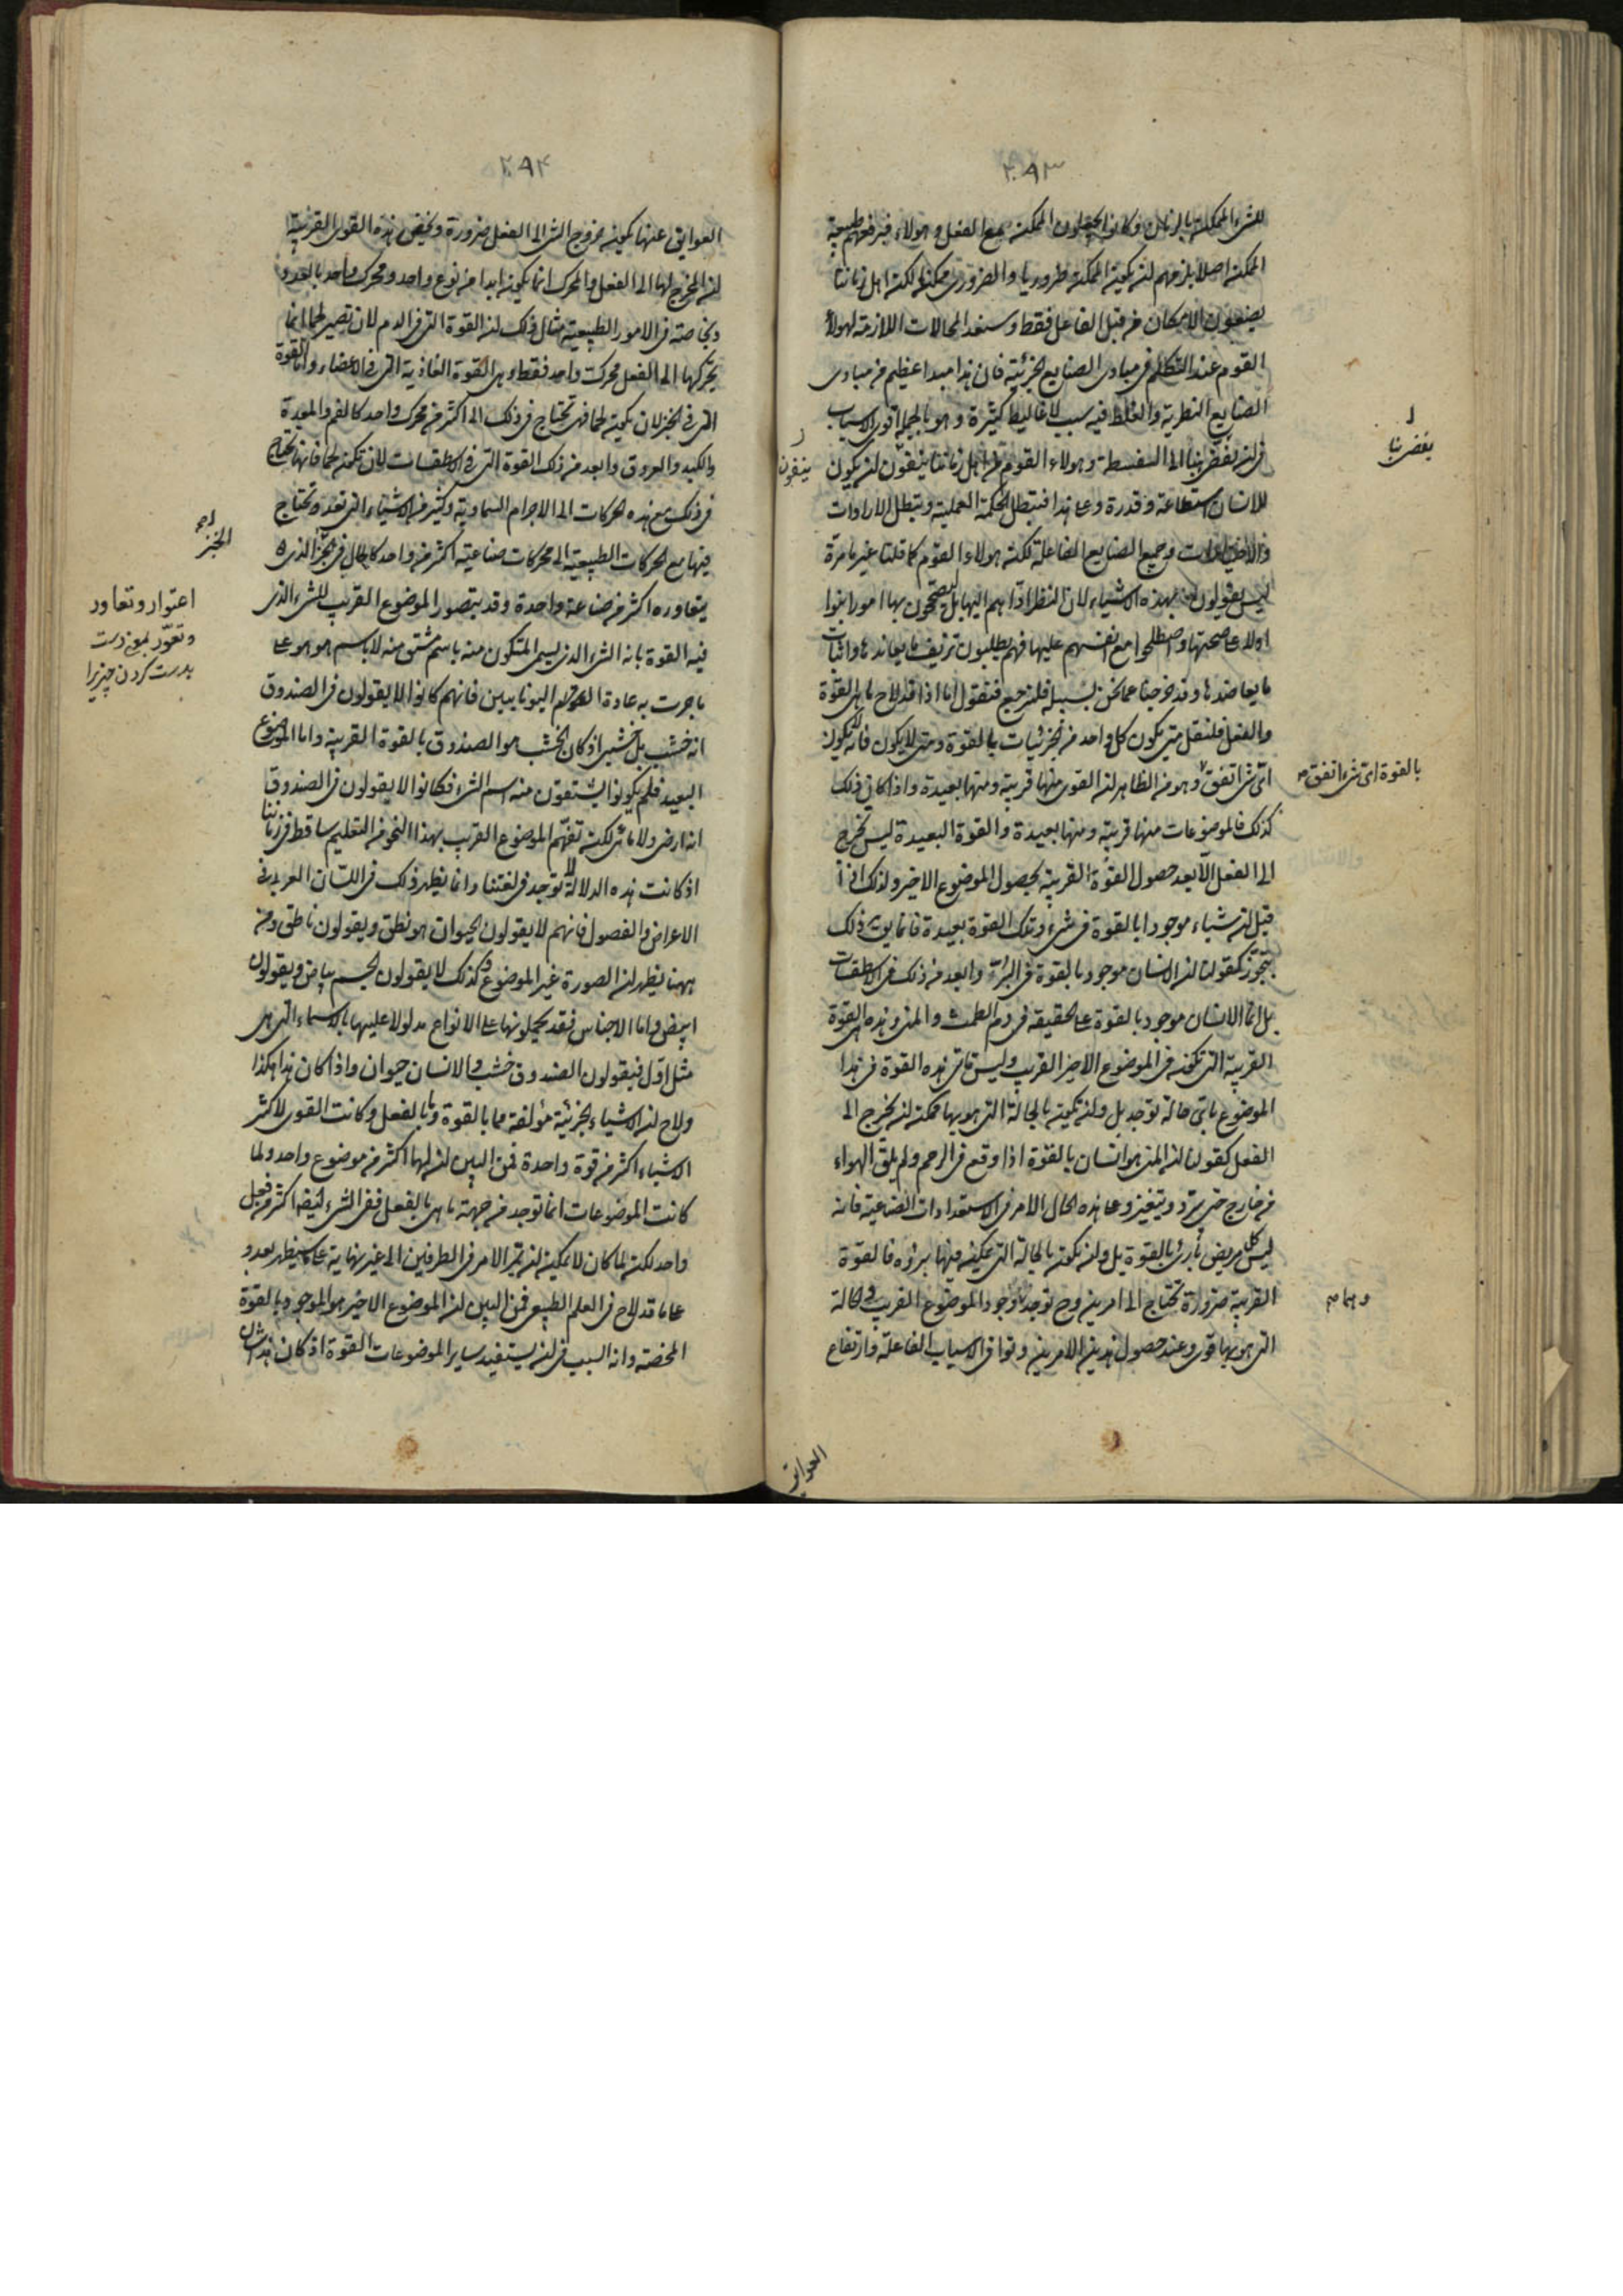 ٢٩٣
للشئ الممكن بالزمان وكانوا يجعلون الممكن مع الفعل وهولاء فبرفعهم طبيعة
الممكن اصلا يلزمهم ان يكون الممكن ضروريا والضروري ممكنا لكن اهل زماننا
يضعون الامكان من قبل الفاعل فقط وسنعد المحالات اللازمة لهولاء
القوم عند التكلم في مبادى الصنايع الجزئية فان هذا مبدا عظيم من مبادى
الصنايع النظرية والغلط فيه سبب لاغاليط كثيرة وهو بالجملة اقوى الاسباب
في ان يفض بنا الى السفسطة وهولاء القوم من اهل زماننا ينفون ان يكون
للانسان استطاعة وقدرة وعلى هذا فتبطل الحكمة العملية وتبطل الارادات
والاختيارات وجميع الصنايع الفاعلة لكن هولاء القوم كما قلنا غير ما مرة
ليس يقولون بهذه الاشياء لان النظر اداهم اليها بل ليصححون بها امورا بنوا
اولا على صحتها واصطلحوا مع انفسهم عليها فهم يطلبون تزييف ما يعاندها واثبات
ما يعاضدها وقد خرجنا عما نحن بسبيله فلنرجع فنقول انا اذا قد لاح ما هي القوة
والفعل فلنقل متى يكون كل واحد من الجزئيات بالقوة ومتى لا يكون فانه ليس يكون
اي شئ اتفق وهو من الظاهر ان القوى منها قريبة ومنها بعيدة واذا كان ذلك
كذلك فالموضوعات منها قريبة ومنها بعيدة والقوة البعيدة ليس تخرج
الى الفعل الا بعد حصول القوة القريبة بحصول الموضوع الاخير ولذلك اذا
قيل ان شيئا موجودا بالقوة في شئ وتلك القوة بعيدة فانما يقال ذلك
بتجوز كقولنا ان الانسان موجود بالقوة في البر وابعد من ذلك في الاسطقسات
بل انما الانسان موجود بالقوة على الحقيقة في دم الطمث والمني وهذه هي القوة
القريبة التي تكون في الموضوع الاخير القريب وليس تاتي هذه القوة في هذا
الموضوع باي حالة توجد بل وان تكون بالحالة التي هو بها ممكن ان يخرج الى
الفعل كقولنا ان المني هو انسان بالقوة اذا وقع في الرحم ولم يلق الهواء
من خارج حتى يبرد ويتغير وعلى هذه الحال الامر في الاستعدادات الصناعية فانه
ليس كل مريض بارئ بالقوة بل وان يكون بالحالة التي يمكن فيها برؤه فالقوة
القريبة ضرورة تحتاج الى امرين وح توجد وجود الموضوع القريب والحالة
التي هو بها قوى وعند حصول هذين الامرين وتوافى الاسباب الفاعلة وارتفاع
يفض بنا
ينفون
بالقوة اي شئ اتفق
وهما
العوايق
٢٩٤
العوايق عنها يكون خروج الشئ الى الفعل ضرورة ويخص هذه القوى القريبة
ان المخرج لها الى الفعل والمحرك انما يكون ابدا من نوع واحد ومحرك واحد بالعدد
وبخاصة في الامور الطبيعية مثال ذلك ان القوة التي في الدم لان تصير لحما انما
يحركها الى الفعل محرك واحد فقط وهي القوة الغاذية التي في الاعضاء واما القوة
التي في الخبز لان يكون لحما فهي تحتاج في ذلك الى اكثر من محرك واحد كالفم والمعدة
والكبد والعروق وابعد من ذلك القوة التي في الاسطقسات لان تكون لحما فانها تحتاج
في ذلك مع هذه المحركات الى الاجرام السماوية وكثير من الاشياء التي تعد تحتاج
فيها مع المحركات الطبيعية الى محركات صناعية اكثر من واحد كالحال في الخبز الذى
يتعاوره اكثر من صناعة واحدة وقد يتصور الموضوع القريب للشئ الذى
فيه القوة بانه الشئ الذى يسمى المتكون منه باسم مشتق منه لا باسم هو هو على
ما جرت به عادة القوم اليونانيين فانهم كانوا لا يقولون في الصندوق
انه خشب بل خشبي اذ كان الخشب هو الصندوق بالقوة القريبة واما الموضوع
البعيد فلم يكونوا يشتقون منه اسم الشئ فكانوا لا يقولون في الصندوق
انه ارضى ولا مائى لكن تفهم الموضوع القريب بهذا النحو من التعليم ساقط في زماننا
اذ كانت هذه الدلالة لا توجد في لغتنا وانما يظهر ذلك في اللسان العربي في
الاعراض والفصول فانهم لا يقولون الحيوان هو نطق ويقولون ناطق ومن
ههنا يظهر ان الصورة غير الموضوع وكذلك لا يقولون الجسم بياض ويقولون
ابيض واما الاجناس فقد يحملونها على الانواع مدلولا عليها بالاسماء التي هي
مثل اول فيقولون الصندوق خشب والانسان حيوان واذا كان هذا هكذا
ولاح ان الاشياء الجزئية مؤلفة مما بالقوة وما بالفعل وكانت القوى لاكثر
الاشياء اكثر من قوة واحدة فمن البين ان لها اكثر من موضوع واحد ولما
كانت الموضوعات انما توجد من جهة ما هي بالفعل ففي الشئ ايضا اكثر من فعل
واحد لكن لما كان لا يمكن ان يمر الامر في الطرفين الى غير نهاية على ما سيظهر بعد و
على ما قد لاح في العلم الطبيعي فمن البين ان الموضوع الاخير هو الموجود بالقوة
المحضة وانه السبب في ان يستفيد ساير الموضوعات القوة اذ كان هذا شان
الخبز
اعتوار وتعاور
وتعوّر بمعنى دست
بدست كردن چيزيرا